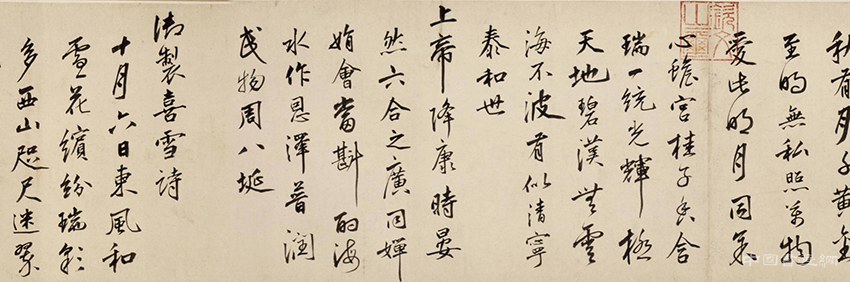 有月黃金
至明無私照萬物
愛此明月同氣
心蟾宮桂子香含
瑞一統光輝極
天地碧漢無雲
海不波有似清寧
泰和世
上帝降康時晏
然六合之廣同嬋
娟會當斟酌海
水作恩澤普潤
民物周八埏
御製喜雪詩
十月六日東風和
雪花繽紛瑞彩
多西山咫尺迷翠